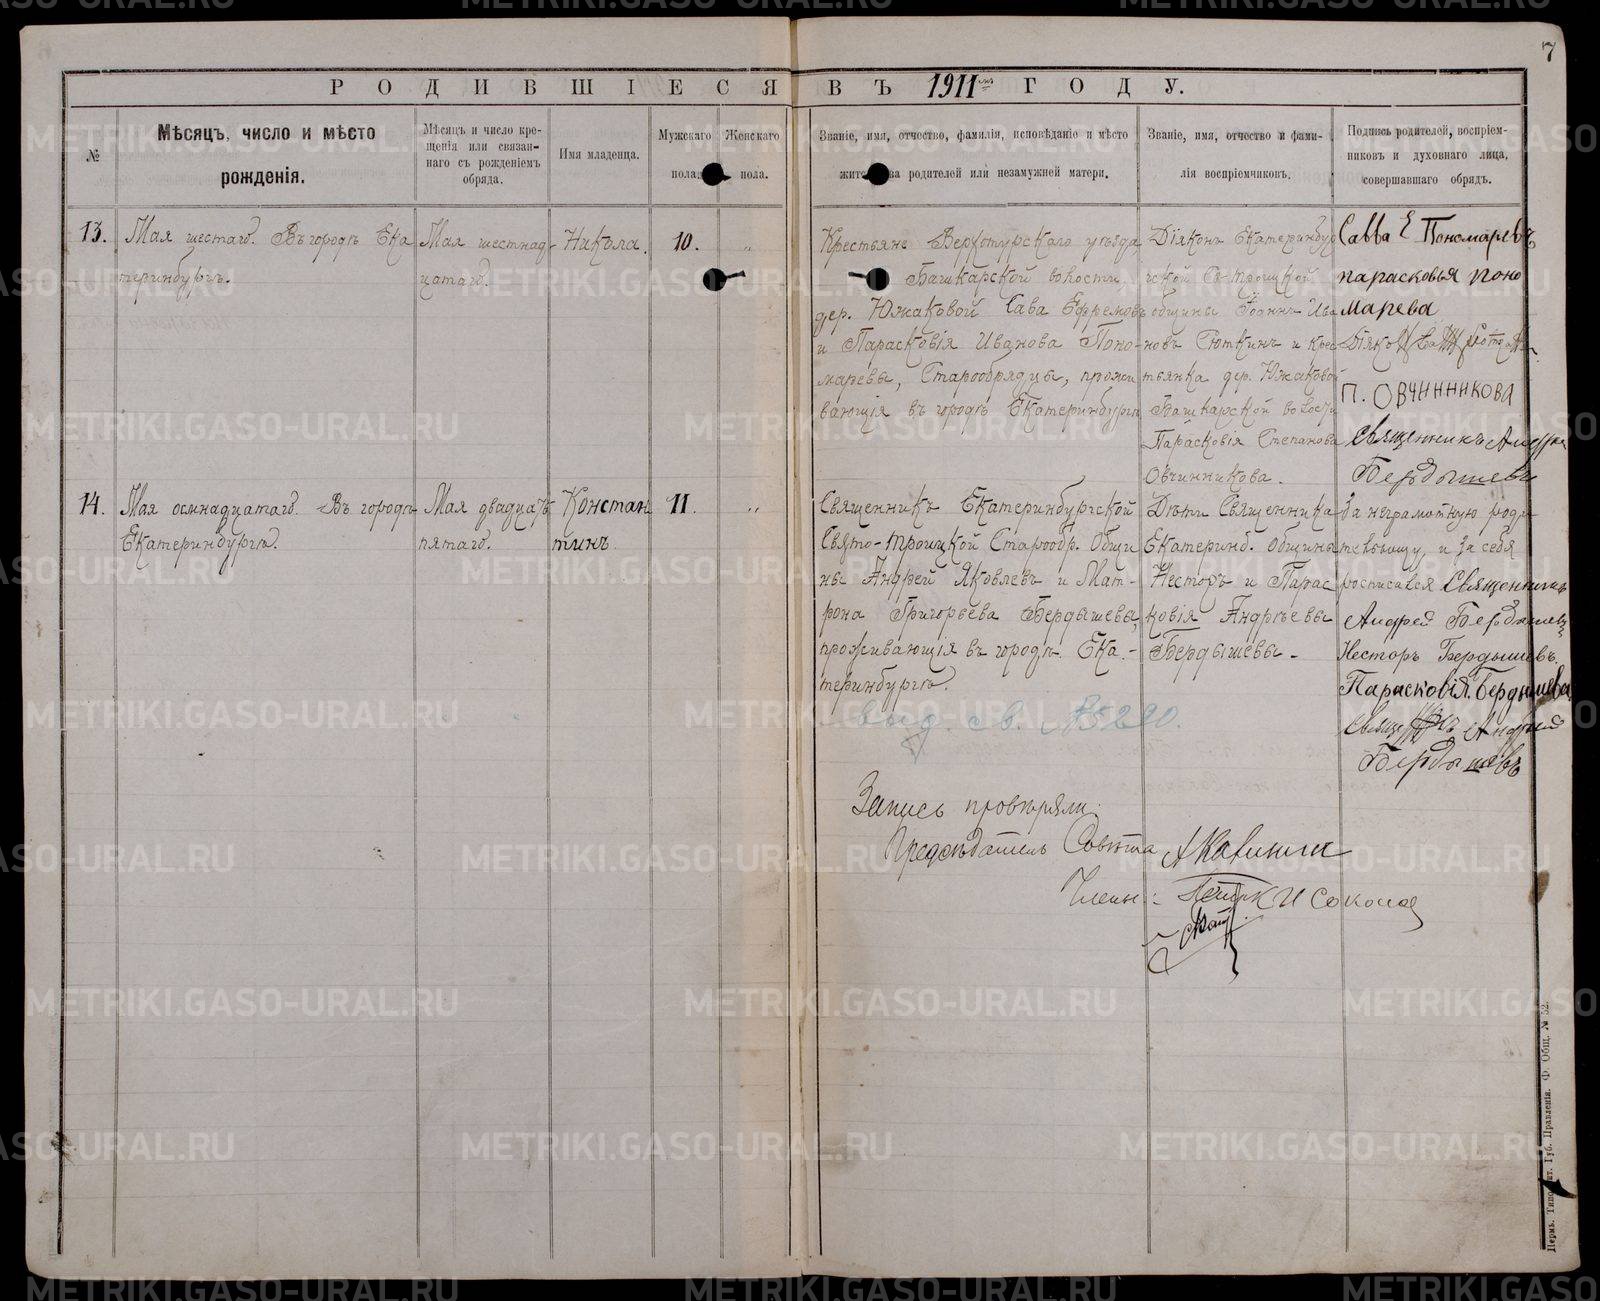 7
РОДИВШІЕСЯ ВЪ 1911 мъ ГОДУ.
№
Мѣсяцъ, число и мѣсто
рожденія.
Мѣсяцъ и число кре-
щенія или связан-
наго съ рожденіемъ
обряда.
Имя младенца.
Мужскаго
пола.
Женскаго
пола.
Званіе, имя, отчество, фамилія, исповѣданіе и мѣсто
жительства родителей или незамужней матери.
Званіе, имя, отчество и фами-
лія воспріемчиковъ.
Подпись родителей, воспріем-
никовъ и духовнаго лица,
совершавшаго обрядъ.
13.
Мая шестаго. Въ городѣ Ека
теринбургъ.
Мая шестнад-
цатаго.
Никола.
10.
„
Крестьяне Верхотурскаго уѣзда,
Башкарской волости
дер. Южаковой Сава Ефремовъ
и Парасковія Иванова Поно-
маревы, Старообрядцы, прожи
вающія въ городѣ Екатеринбургѣ
Діяконъ Екатеринбур
гской Св-Троицкой
общины Іоаннъ Ива
новъ Сюткинъ и крес
тьянка дер. Южаковой
Башкарской волости
Парасковія Степанова
Овчинникова.
Савва Е Пономаревъ
парасковья поно
марева
Діяконъ
П. ОВЧИННИКОВА
Священникъ Андрей
Бердышевъ
14.
Мая осмнадцатаго. Въ городѣ
Екатеринбургѣ.
Мая двадцать
пятаго.
Констан
тинъ.
11.
„
Священникъ Екатеринбургской
Свято-Троицкой Старообр. Общи
ны Андрей Яковлевъ и Мат-
рона Григорьева Бердышевы,
проживающія въ городѣ Ека.-
теринбургѣ.
Дѣти Священника
Екатеринб. Общины
Несторъ и Парас
ковія Андрѣевы
Бердышевы -
За неграмотную роди
тельницу, и за себя
росписался Священникъ
Андрей Бердышевъ
Несторъ Бердышевъ.
Парасковія Бердышева
Священникъ Андрей
Бердышевъ
выд. св. №5290.
Запись провѣряли:
Предсѣдатель Совѣта
Члены:
И Соколов
Пермь. Типо-лит. Губ. Правленія. Ф. Общ. № 52.
METRIKI.GASO-URAL.RU